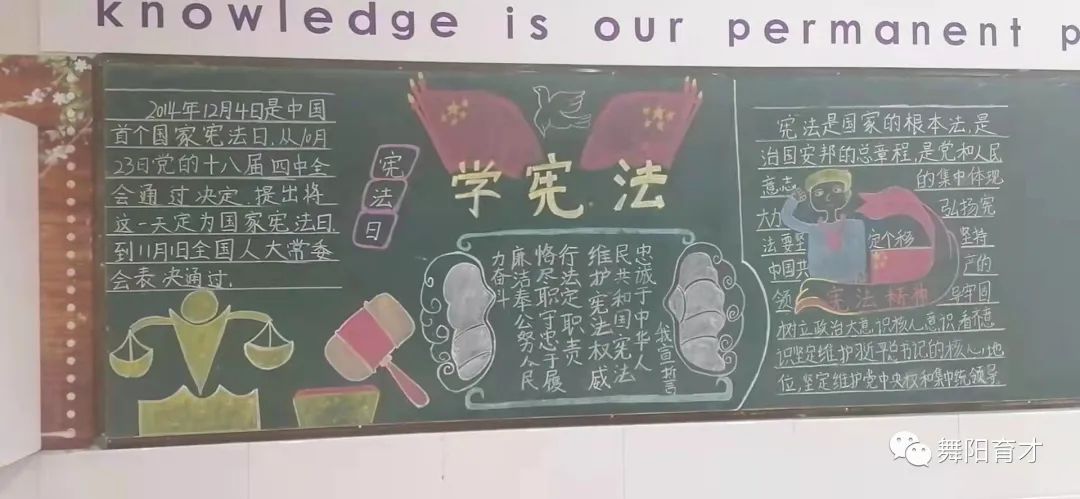 knowledge is our permanent p
2014年12月4日是中国
首个国家宪法日,从10月
23日党的十八届四中全
会通过决定.提出将
这一天定为国家宪法日.
到11月1日全国人大常委
会表决通过.
宪法日
学宪法
我宣誓
忠诚于中华人
民共和国宪法
维护宪法权威
行法定职责
恪尽职守忠于履
廉洁奉公努民
力奋斗
宪法是国家的根本法,是
治国安邦的总章程,是党和人民
意志的集中体现
大力弘扬宪
法要坚定个移坚持
中国共产的
领导牢固
宪法精神
树立政治大意识核心意识看齐意
识坚定维护习近平总书记的核心地
位,坚定维护党中央权和集中统领导.
舞阳育才